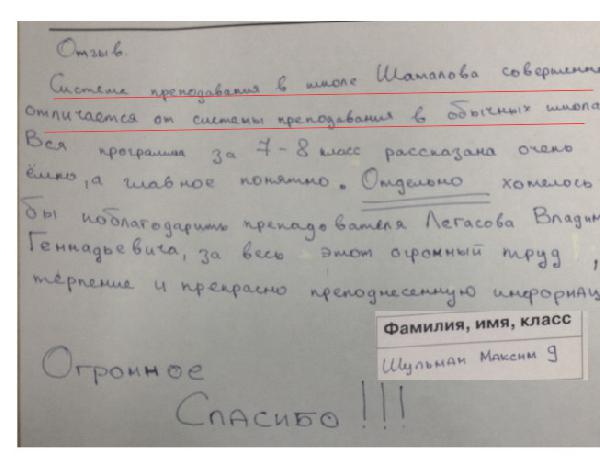 Отзыв.
Система преподавания в школе Шамалова совершенн
отличается от системы преподавания в обычных школа
Вся программа за 7-8 класс рассказана очень
ёмко, а главное понятно. Отдельно хотелось
бы поблагодарить преподователя Легасова Владим
Геннадьевича, за весь этот огромный труд,
терпение и прекрасно преподнесенную информац
Фамилия, имя, класс
Шульман Максим 9
Огромное
Спасибо!!!